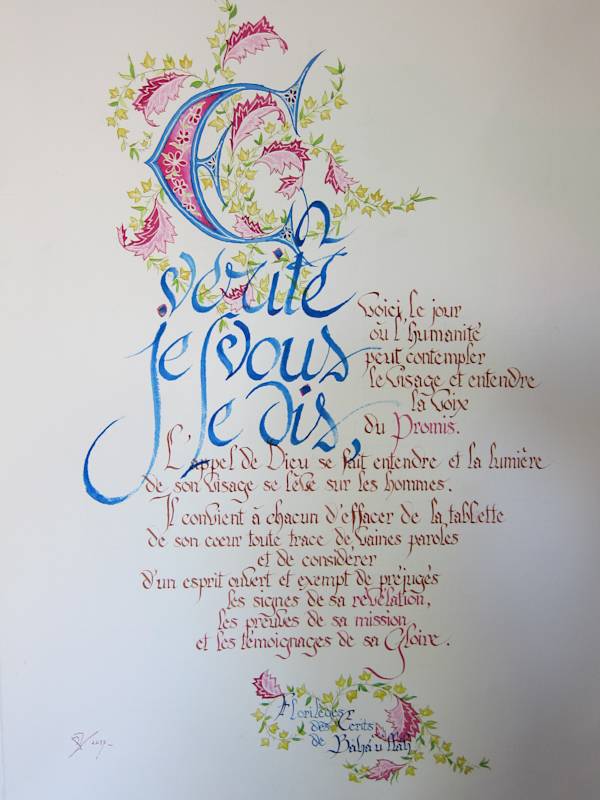 En
vérité
je vous
le dis,
voici le jour
où l'humanité
peut contempler
le visage et entendre
la voix
du Promis.
L'appel de Dieu se fait entendre et la lumière
de son visage se lève sur les hommes.
Il convient à chacun d'effacer de la tablette
de son coeur toute trace de vaines paroles
et de considérer
d'un esprit ouvert et exempt de préjugés
les signes de sa révélation,
les preuves de sa mission
et les témoignages de sa Gloire.
Florilèges
des Ecrits
de Bahá'u'lláh